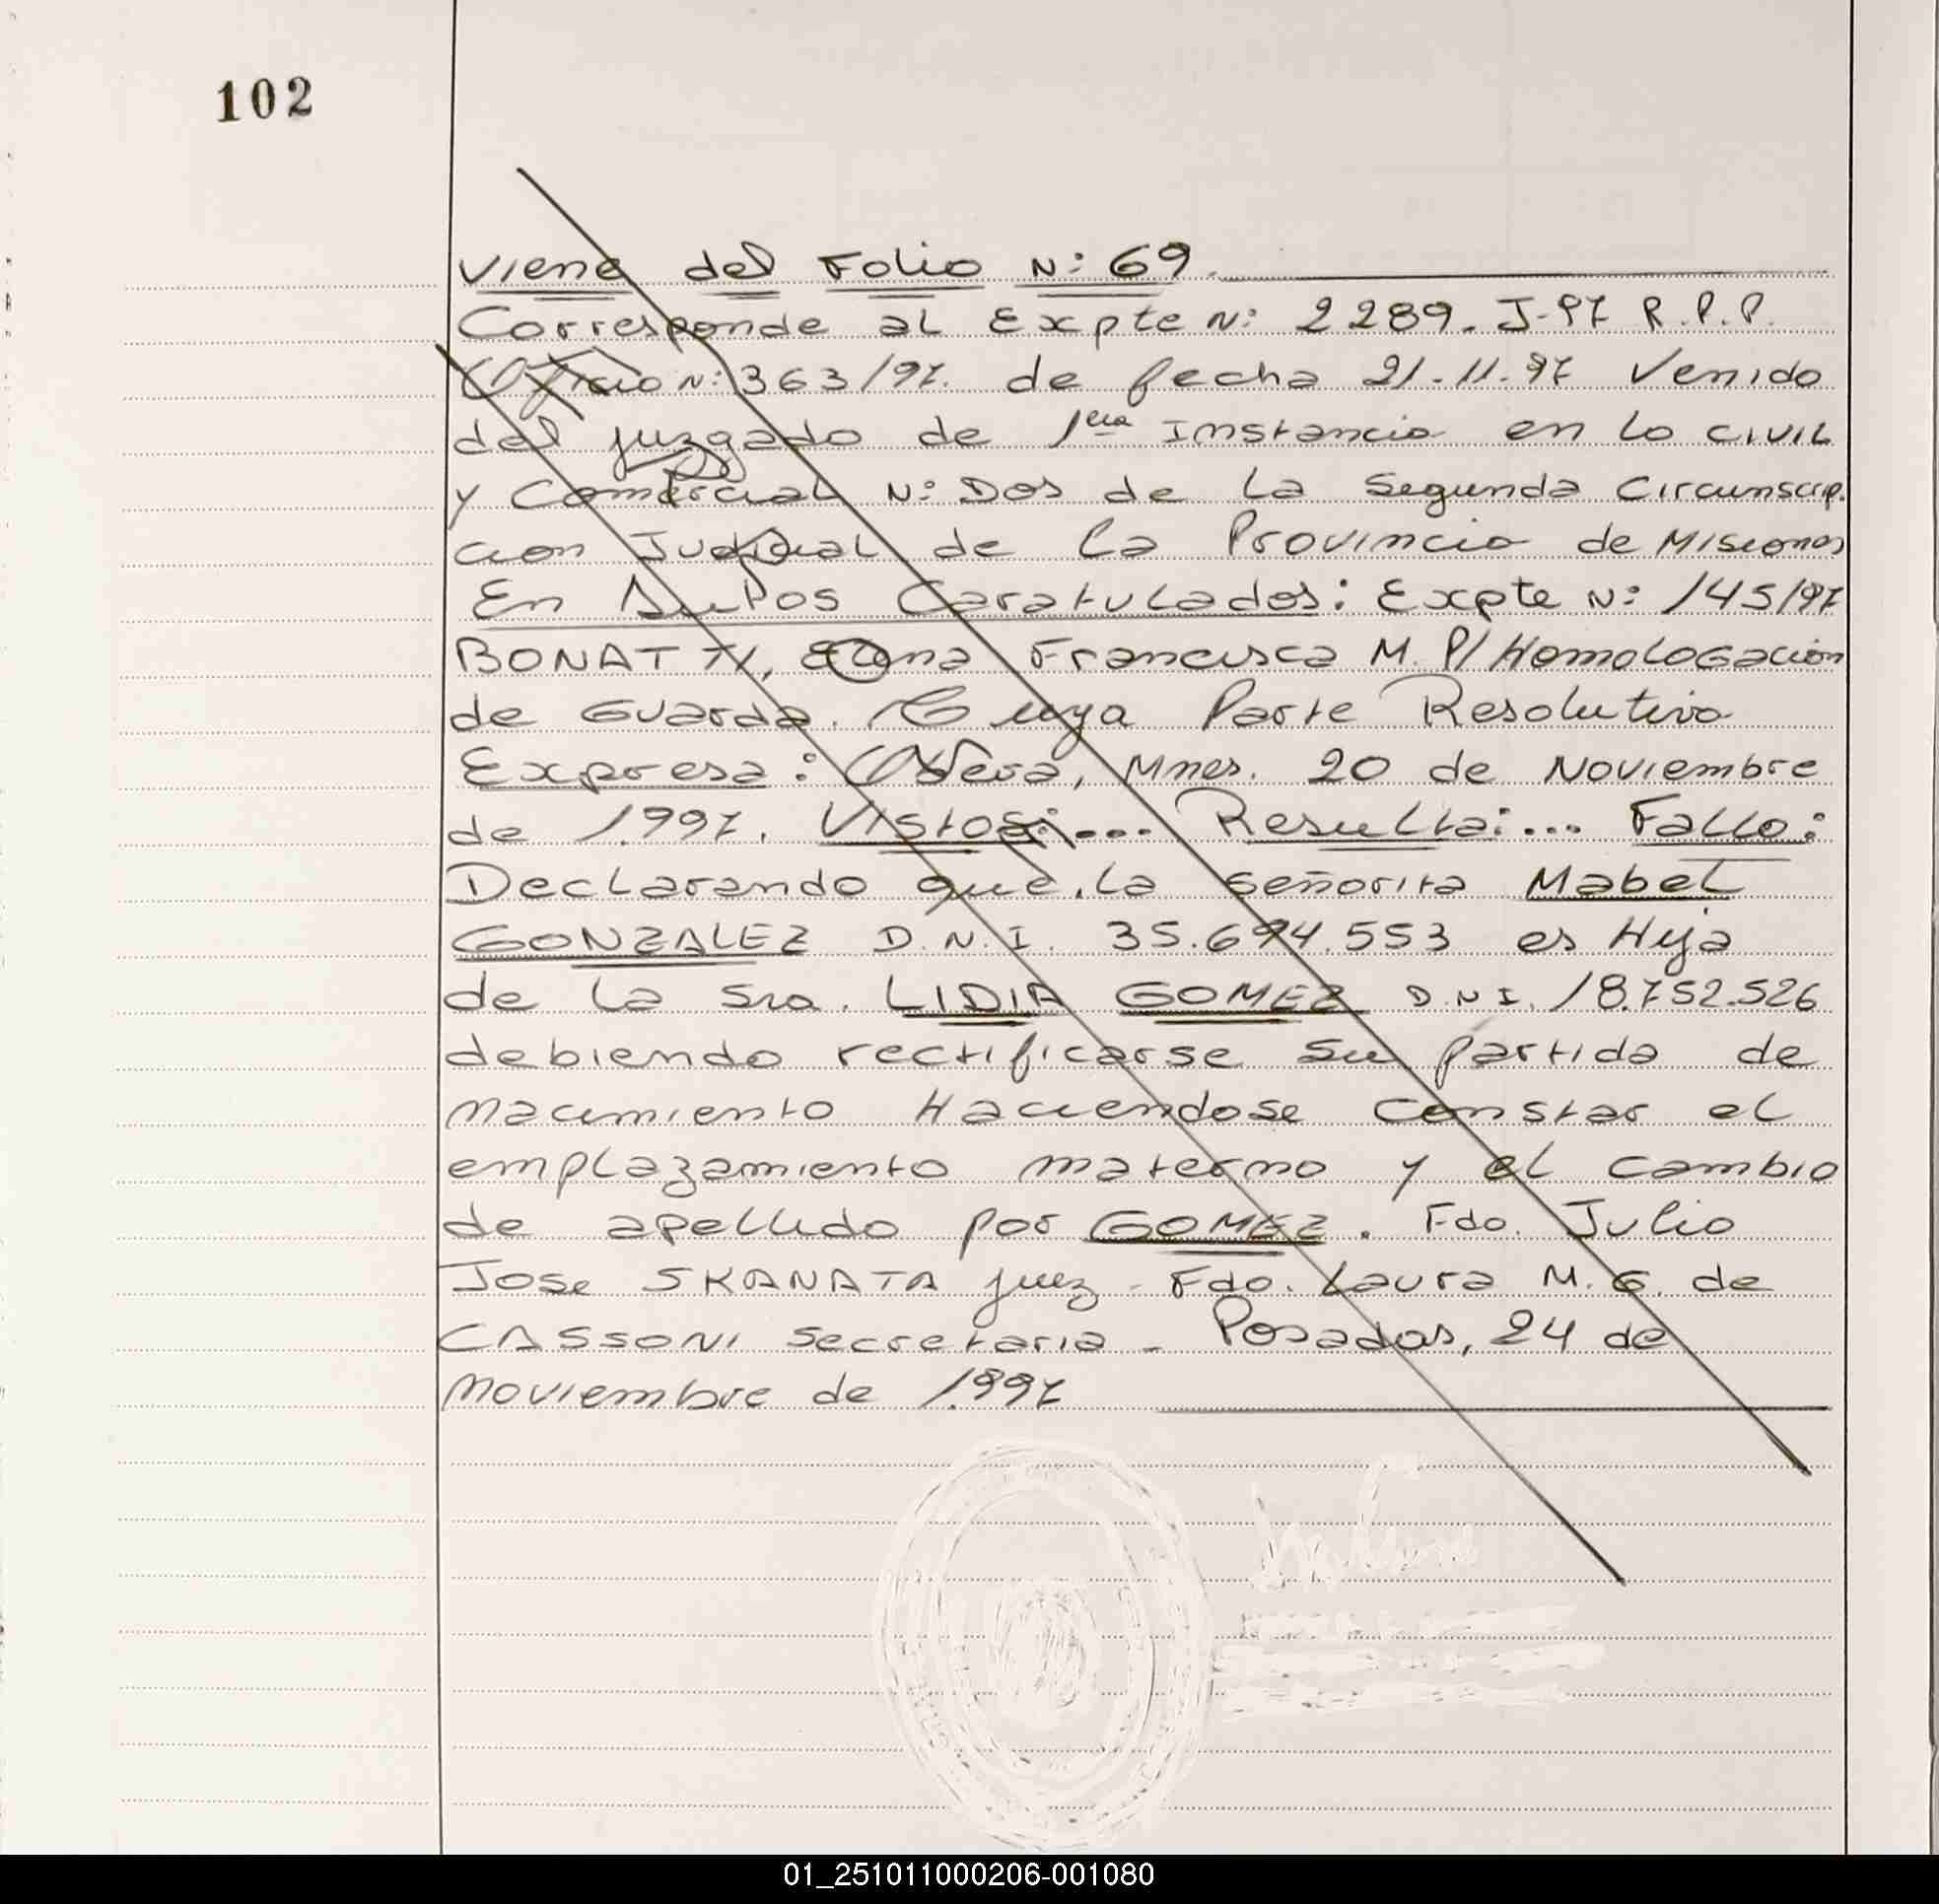 102
Viene del Folio N: 69.
Corresponde al Expte N: 2289. J-97 R.P.P.
Oficio N: 363/97. de fecha 21.11.97 Venido
del juzgado de 1era Instancia en lo CIVIL
y Comercial N: Dos de la Segunda Circunscrip.
cion Judicial de la Provincia de Misiones
En Autos Caratulados: Expte N: 145/97
BONATTI, Francisca M. P/ Homologacion
de Guarda. Cuya Parte Resolutiva
Expresa: Obera, Mnes. 20 de Noviembre
de 1997. Vistos:... Resulta:... Fallo:
Declarando que la señorita Mabel
GONZALEZ D.N.I. 35.694.553 es Hija
de la Sra. LIDIA GOMEZ D.N.I. 18.752.526
debiendo rectificarse su partida de
nacimiento Haciendose constar el
emplazamiento materno y el cambio
de apellido por GOMEZ. Fdo. Julio
Jose SKANATA juez - Fdo. Laura M. G. de
CASSONI Secretaria - Posadas, 24 de
noviembre de 1997
01_251011000206-001080